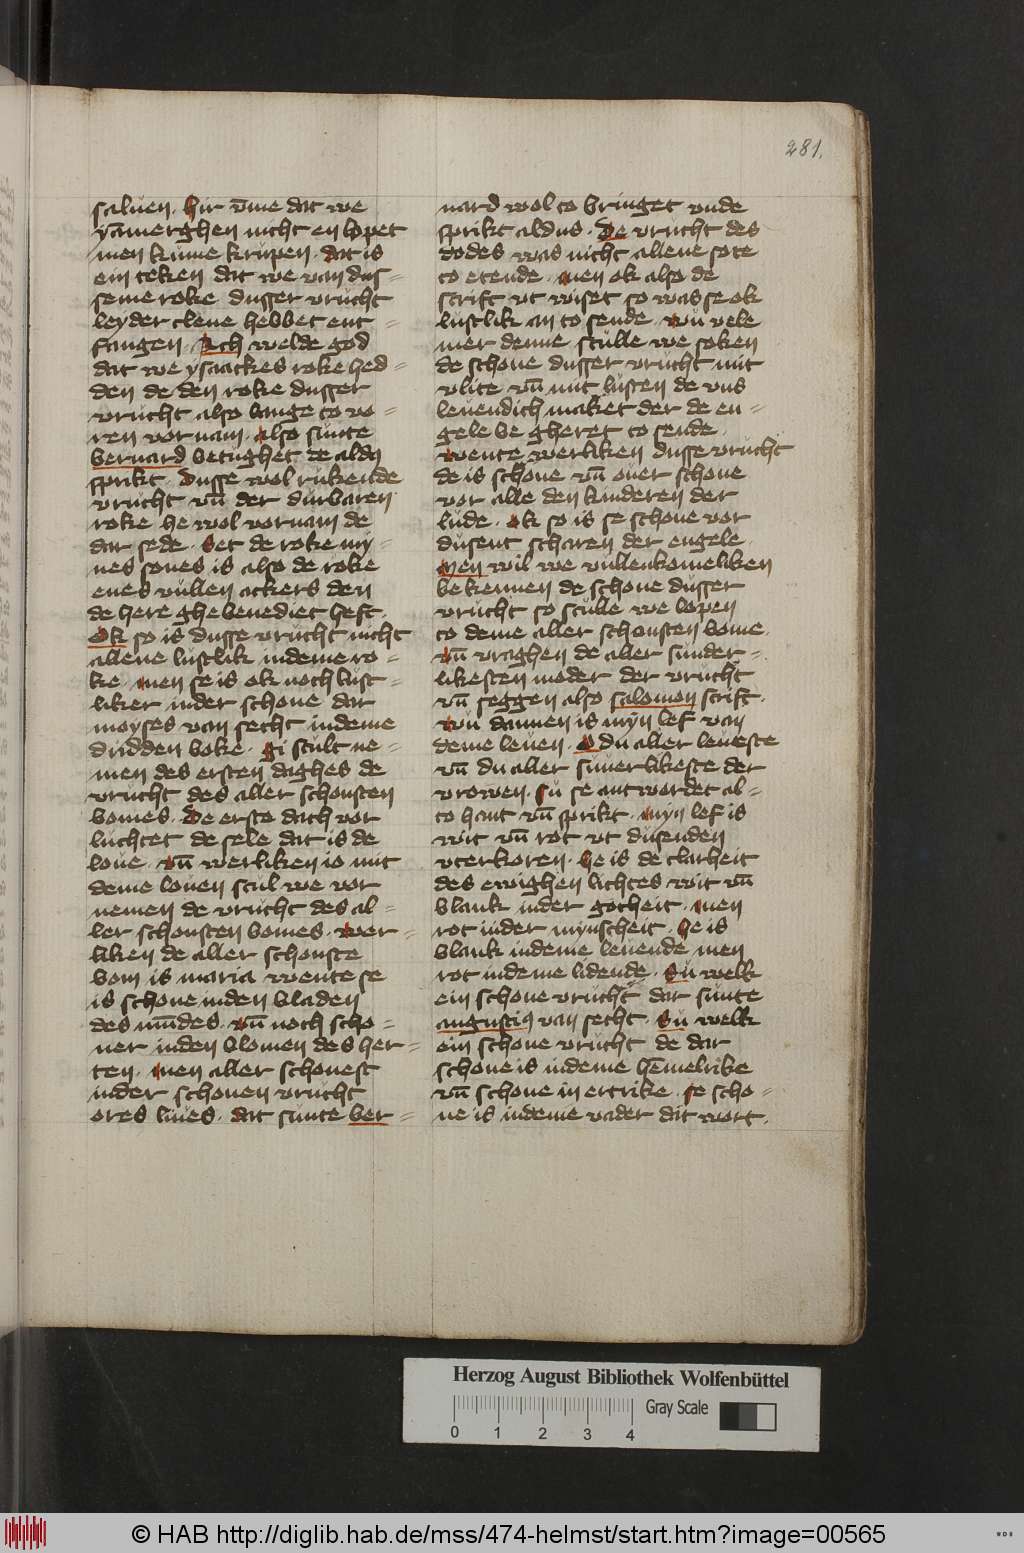 281.
saluen. hir v̄me dat we
yāmerghen nicht en lopet
men kume krupen. dat is
ein teken dat we van dus-
seme roke dusser vrucht
leyder clene hebbet ent-
fangen. Ach welde god
dat we ysaackes roke hed-
den de den roke dusser
vrucht also lange to vo-
ren vornam. also sunte
bernard betughet de aldꝰ
sprikt. dusse wol rukende
vrucht vn̄ der durbaren
roke he wol vornam de
dar sede. Set de roke my-
nes sones is also de roke
enes vullen ackers den
de here ghebenediet heft.
Ok so is dusse vrucht nicht
allene lustlik indeme ro-
ke. men se is ok noch lust-
liker inder schone dar
moyses van secht indeme
drudden boke. Gi scult ne-
men des ersten daghes de
vrucht des aller schonsten
bomes. De erste dach vor
luchtet de sele dat is de
loue. vn̄ werliken io mit
deme louen scul we vor
nemen de vrucht des al-
ler schonsten bomes. wer-
liken de aller schonste
bom is maria wente se
is schone inden bladen
des mūdes. vn̄ noch scho-
ner inden blomen des her-
ten. men aller schonest
inder schonen vrucht
ores liues. dat sunte ber-
nard wol to bringet vnde
sprikt aldus. De vrucht des
dodes was nicht allene sote
to etende. men ok also de
scrift vt wiset so was se ok
lustlik an to sende. wu vele
mer denne sculle we soken
de schone dusser vrucht mit
vlite vn̄ mit lusten de vns
leuendich maket der de en-
gele be gheret to sende.
wente werliken dusse vrucht
de is schone vn̄ ouer schone
vor alle den kinderen der
lude. Ok so is se schone vor
dusent scharen der engele.
Men wil we vullenkomeliken
bekennen de schone dusser
vrucht so sculle we lopen
to deme aller schonsten bome.
vn̄ vraghen de aller sunder-
likesten moder der vrucht
vn̄ seggen also salomon scrift.
wu dannen is myn lef van
deme leuen. O du aller leueste
vn̄ du aller suuerlikeste der
vrowen. Su se antwordet al-
to hant vn̄ sprikt. myn lef is
wit vn̄ rot vt dusenden
vterkoren. he is de clarheit
des ewighen lichtes wit vn̄
blank inder gotheit. men
rot inder mynscheit. he is
blank indeme leuende men
rot indeme lidende. Su welk
ein schone vrucht dar sunte
augustiꝰ van secht. Su welk
ein schone vrucht de dar
schone is indeme hēmelrike
vn̄ schone in ertrike. se scho-
ne is indeme vader dat wort.
Herzog August Bibliothek Wolfenbüttel
Gray Scale
0 1 2 3 4
© HAB http://diglib.hab.de/mss/474-helmst/start.htm?image=00565